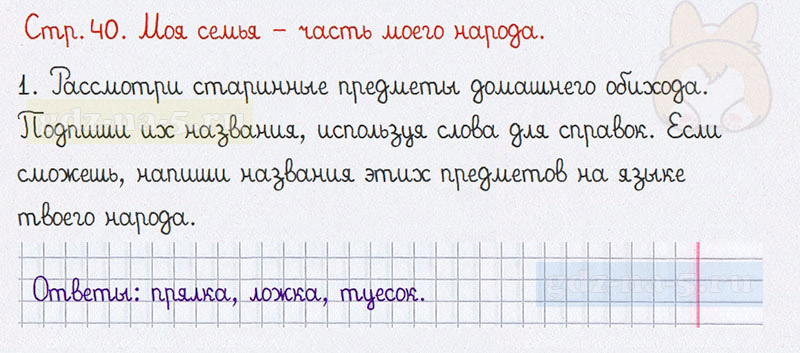 Стр. 40. Моя семья – часть моего народа.
1. Рассмотри старинные предметы домашнего обихода.
Подпиши их названия, используя слова для справок. Если
сможешь, напиши названия этих предметов на языке
твоего народа.
Ответы: прялка, ложка, туесок.
gdz-na-5.ru
gdz-na-5.ru